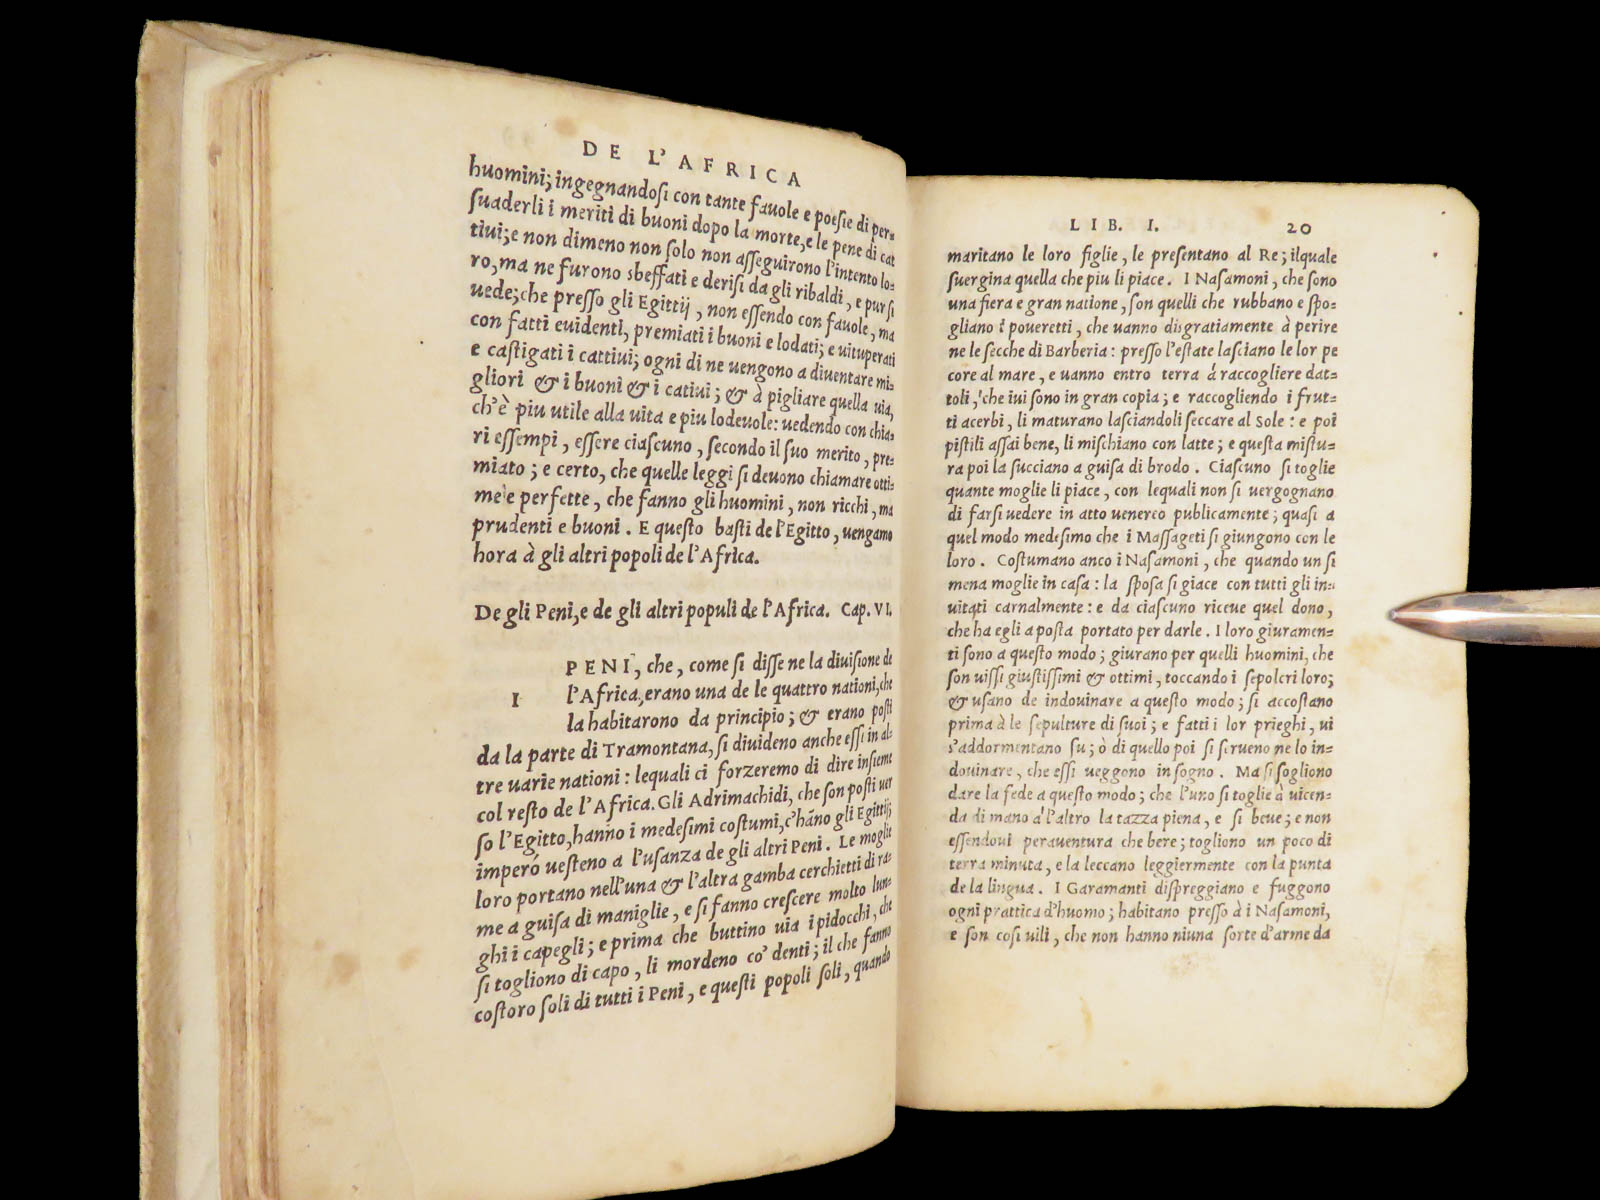 DE L'AFRICA
huomini; ingegnandosi con tante fauole e poesie di per-
suaderli i meriti di buoni dopo la morte, e le pene di cat
tiui; e non dimeno non solo non asseguirono l'intento lo-
ro, ma ne furono sbeffati e derisi da gli ribaldi, e pur si
uede; che presso gli Egittij, non essendo con fauole, ma
con fatti euidenti, premiati i buoni e lodati; e uituperati
e castigati i cattiui; ogni di ne uengono a diuentare mi-
gliori & i buoni & i catiui; & à pigliare quella uia,
ch'è piu utile alla uita e piu lodeuole: uedendo con chia-
ri essempi, essere ciascuno, secondo il suo merito, pre-
miato; e certo, che quelle leggi si deuono chiamare otti-
me e perfette, che fanno gli huomini, non ricchi, ma
prudenti e buoni. E questo basti de l'Egitto, uengamo
hora à gli altri popoli de l'Africa.
De gli Peni, e de gli altri populi de l'Africa. Cap. VI.
I PENI, che, come si disse ne la diuisione de
l'Africa, erano una de le quattro nationi, che
la habitarono da principio; & erano posti
da la parte di Tramontana, si diuideno anche essi in al-
tre uarie nationi: lequali ci forzeremo di dire insieme
col resto de l'Africa. Gli Adrimachidi, che son posti uer
so l'Egitto, hanno i medesimi costumi, c'hāno gli Egittij;
imperó uesteno a l'usanza de gli altri Peni. Le moglie
loro portano nell'una & l'altra gamba cerchietti di ra-
me a guisa di maniglie, e si fanno crescere molto lun-
ghi i capegli; e prima che buttino uia i pidocchi, che
si togliono di capo, li mordeno co' denti; il che fanno
costoro soli di tutti i Peni, e questi popoli soli, quando
LIB. I. 20
maritano le loro figlie, le presentano al Re; ilquale
suergina quella che piu li piace. I Nasamoni, che sono
una fiera e gran natione, son quelli che rubbano e spo-
gliano i poueretti, che uanno disgratiamente à perire
ne le secche di Barberia: presso l'estate lasciano le lor pe
core al mare, e uanno entro terra à raccogliere dat-
toli, che iui sono in gran copia; e raccogliendo i frut-
ti acerbi, li maturano lasciandoli seccare al Sole: e poi
pistili assai bene, li mischiano con latte; e questa mistu-
ra poi la succiano a guisa di brodo. Ciascuno si toglie
quante moglie li piace, con lequali non si uergognano
di farsi uedere in atto uenereo publicamente; quasi a
quel modo medesimo che i Massageti si giungono con le
loro. Costumano anco i Nasamoni, che quando un si
mena moglie in casa: la sposa si giace con tutti gli in-
uitati carnalmente: e da ciascuno riceue quel dono,
che ha egli a posta portato per darle. I loro giuramen-
ti sono a questo modo; giurano per quelli huomini, che
son uissi giustissimi & ottimi, toccando i sepolcri loro;
& usano de indouinare a questo modo; si accostano
prima à le sepulture di suoi; e fatti i lor prieghi, ui
s'addormentano su; ò di quello poi si serueno ne lo in-
douinare, che essi ueggono in sogno. Ma si sogliono
dare la fede a questo modo; che l'uno si toglie à uicen-
da di mano a l'altro la tazza piena, e si beue; e non
essendoui perauentura che bere; togliono un poco di
terra minuta, e la leccano leggiermente con la punta
de la lingua. I Garamanti dispreggiano e fuggono
ogni prattica d'huomo; habitano presso à i Nasamoni,
e son cosi uili, che non hanno niuna sorte d'arme da